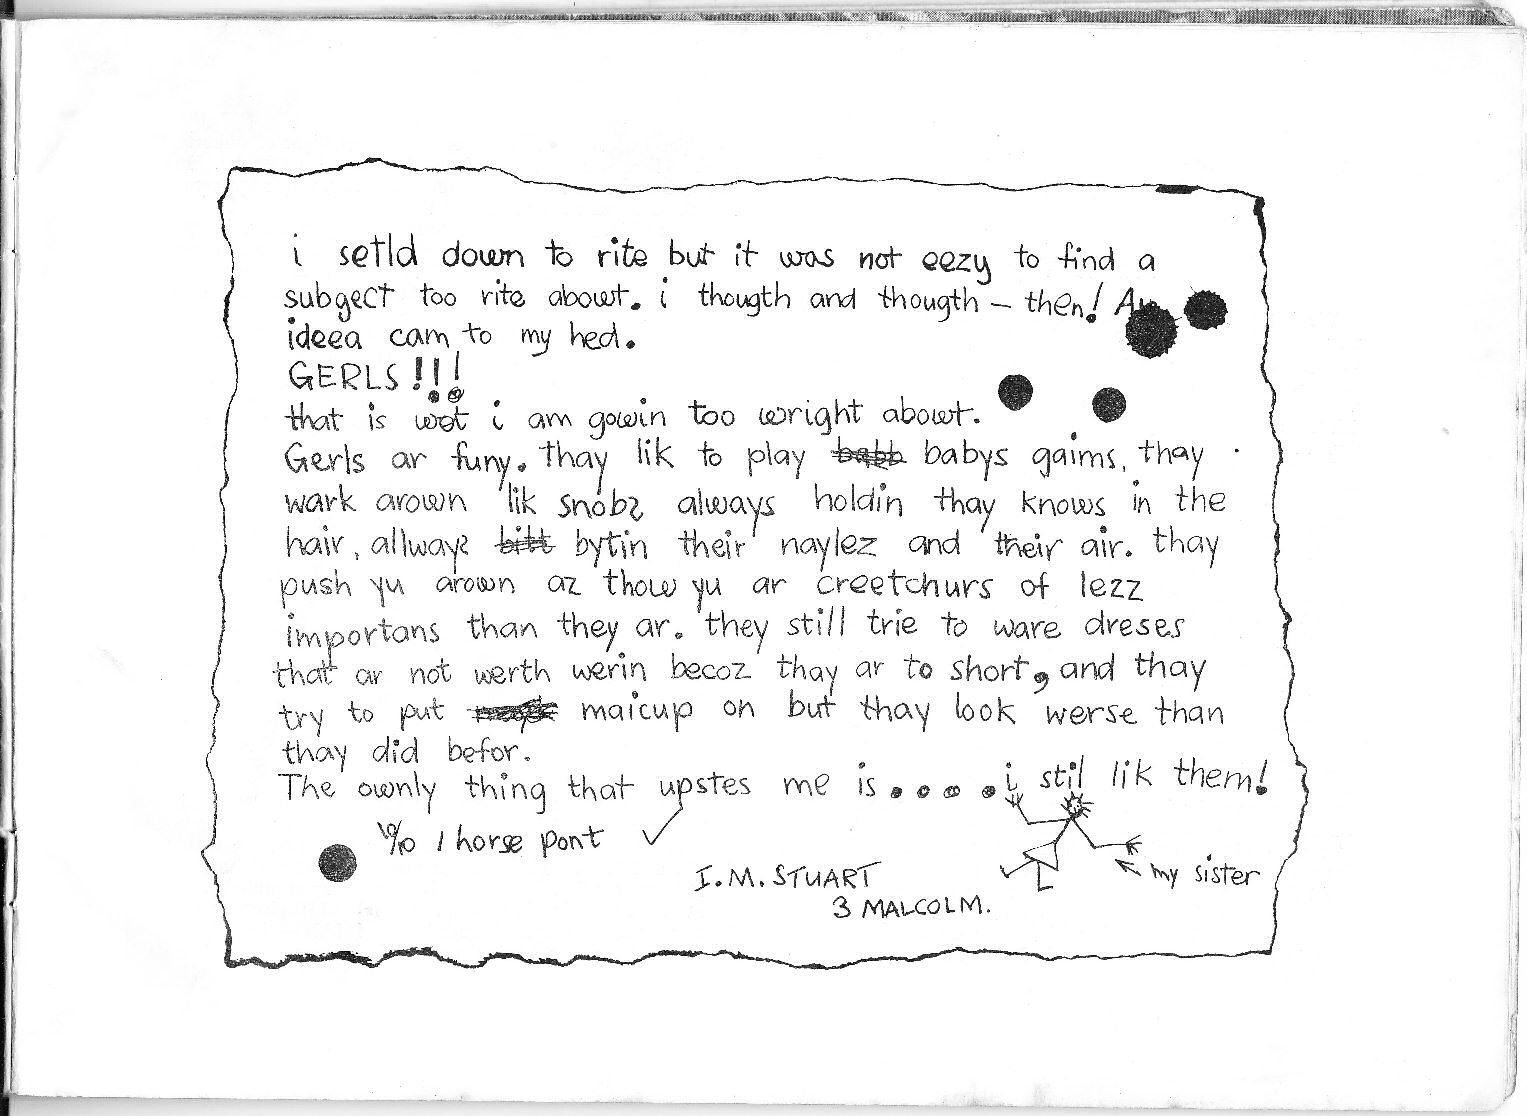 i setld down to rite but it was not eezy to find a
subgect too rite abowt. i thougth and thougth – then! An
ideea cam to my hed.
GERLS!!!
that is wot i am gowin too wright abowt.
Gerls ar funy. thay lik to play babb babys gaims, thay
wark arown lik snobs always holdin thay knows in the
hair, allways bitt bytin their naylez and their air. thay
push yu arown az thow yu ar creetchurs of lezz
importans than they ar. they still trie to ware dreses
that ar not werth werin becoz thay ar to short, and thay
try to put maicup on but thay look werse than
thay did befor.
The ownly thing that upstes me is....i stil lik them!
10/10 1 horse pont ✓
I.M. STUART
my sister
3 MALCOLM.